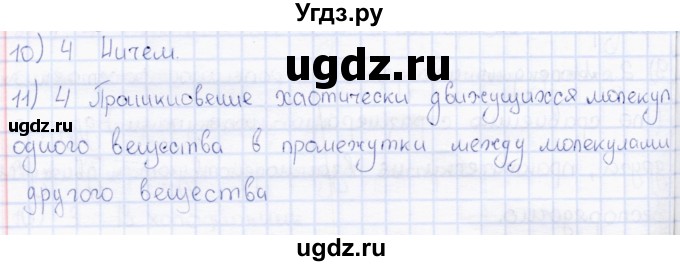 Угдз.ру
10) 4 Ничем.
ugdz.ru
11) 4 Проникновение хаотически движущихся молекул
одного вещества в промежутки между молекулами
другого вещества
ugdz.ru
ugdz.ru